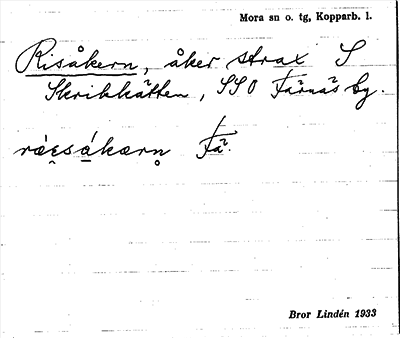 Mora sn o. tg, Kopparb. l.
Risåkern, åker strax S
Skrikkätten, SSO Färnäs by.
Fä.
Bror Lindén 1933